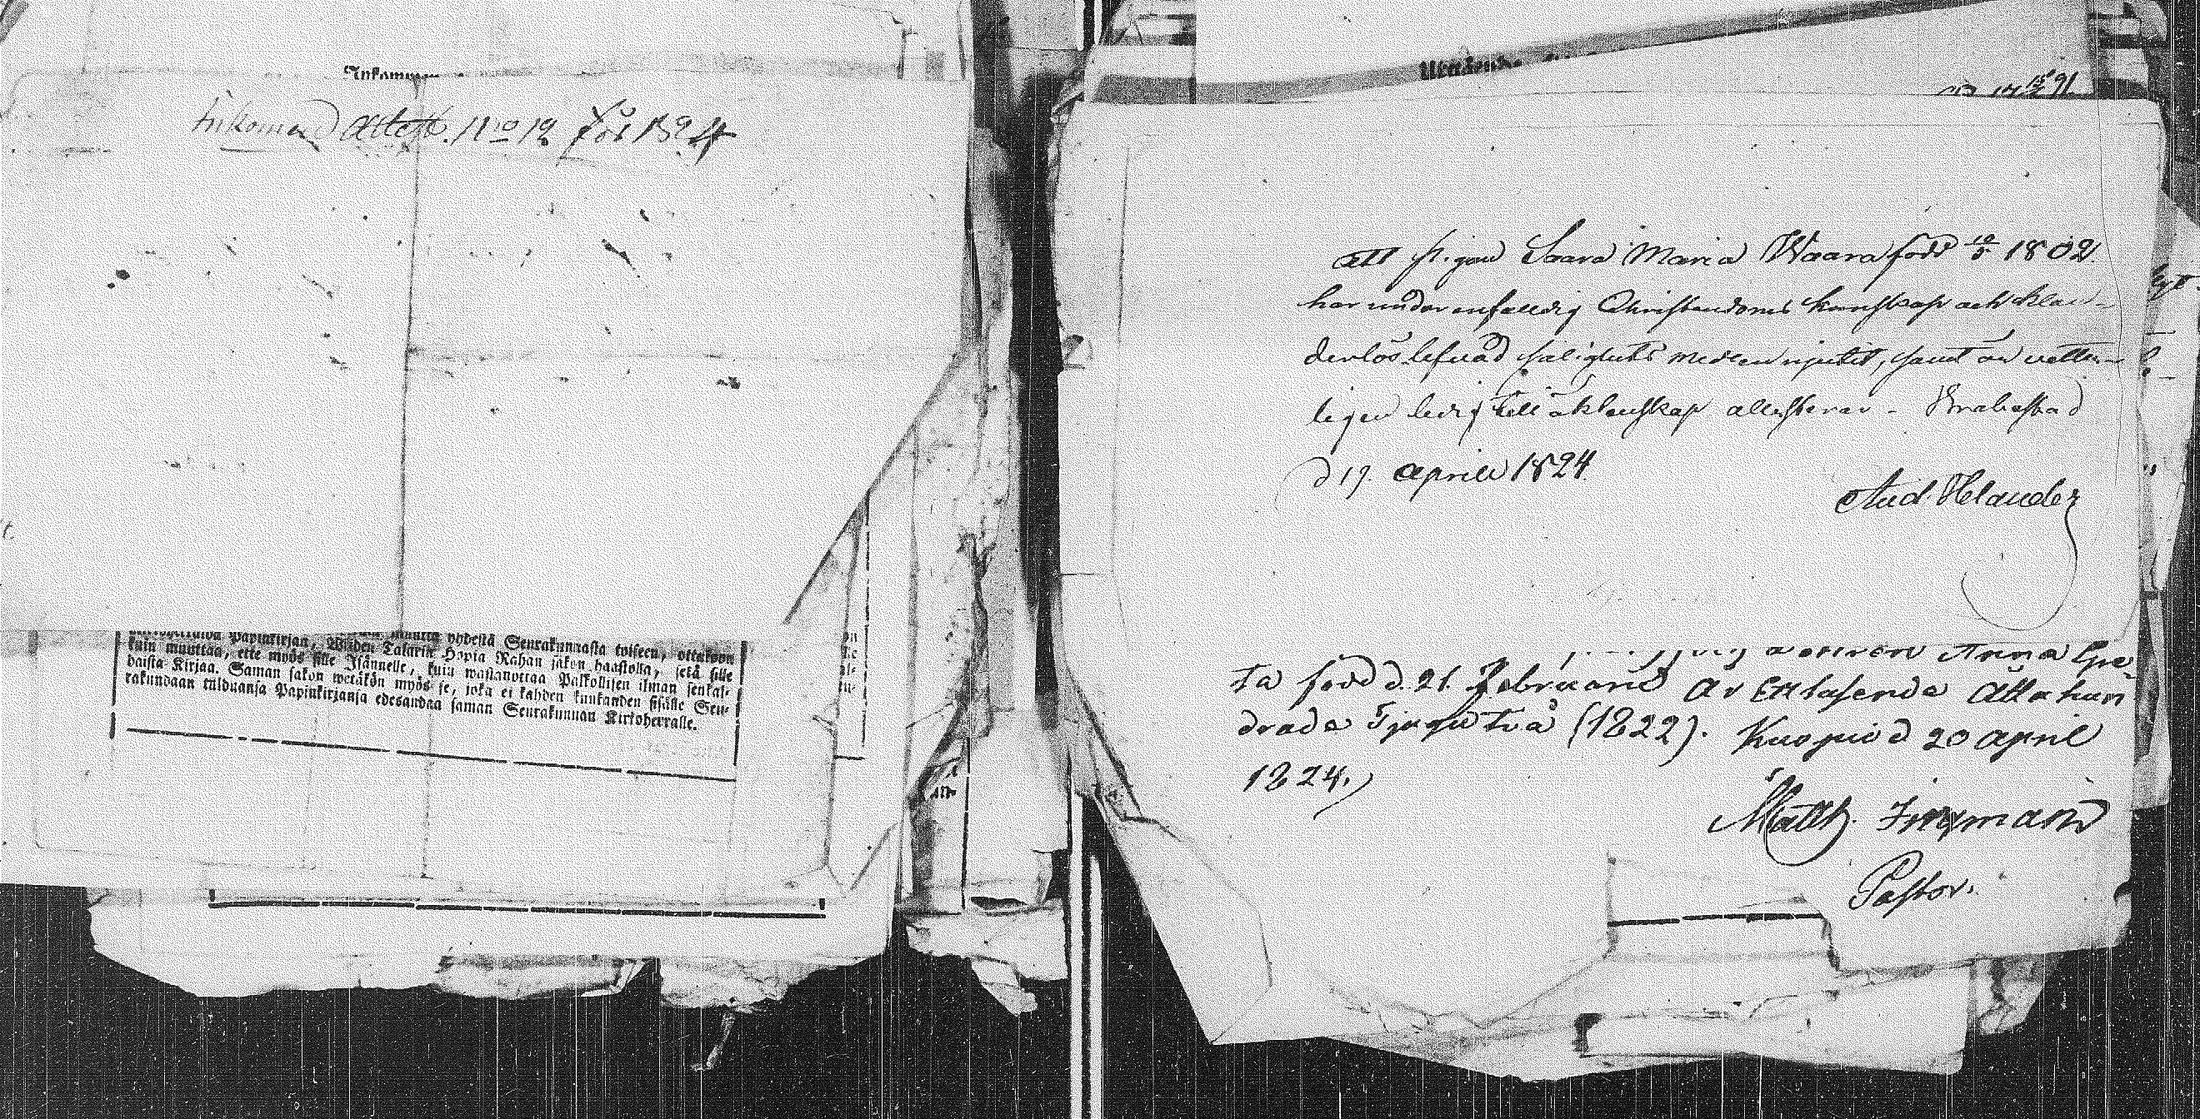 Inkommand Attest. No 12 för 1824
Papinkirjan, muutta yhdestä Seurakunnasta toiseen, ottakoon
kuin muuttaa, ette myös sille Isännelle, kuin wastanottaa Palkollisen ilman senkal-
daista Kirjaa. Saman sakon wetäkön myös se, joka ei kahden kuukauden sisälle Seu-
rakundaan tulduansa Papinkirjanja edesandaa saman Seurakunnan Kirkoherralle.
att pigan Saara Maria Waara född 1802
har under enfaldig Christendoms kunskap och klan-
derlös lefnad salighets medlen njutit, samt är vetter-
ligen ledig till äktenskap attesterar - Brahestad
d 19. Aprill 1824.
And Helander
Anna Gre
ta född d. 21. Februarii Ar Ettusende Åtta hun
drade Tjugutvå (1822). Kuopio d 20 April
1824.
Matth. Ingman
Pastor.